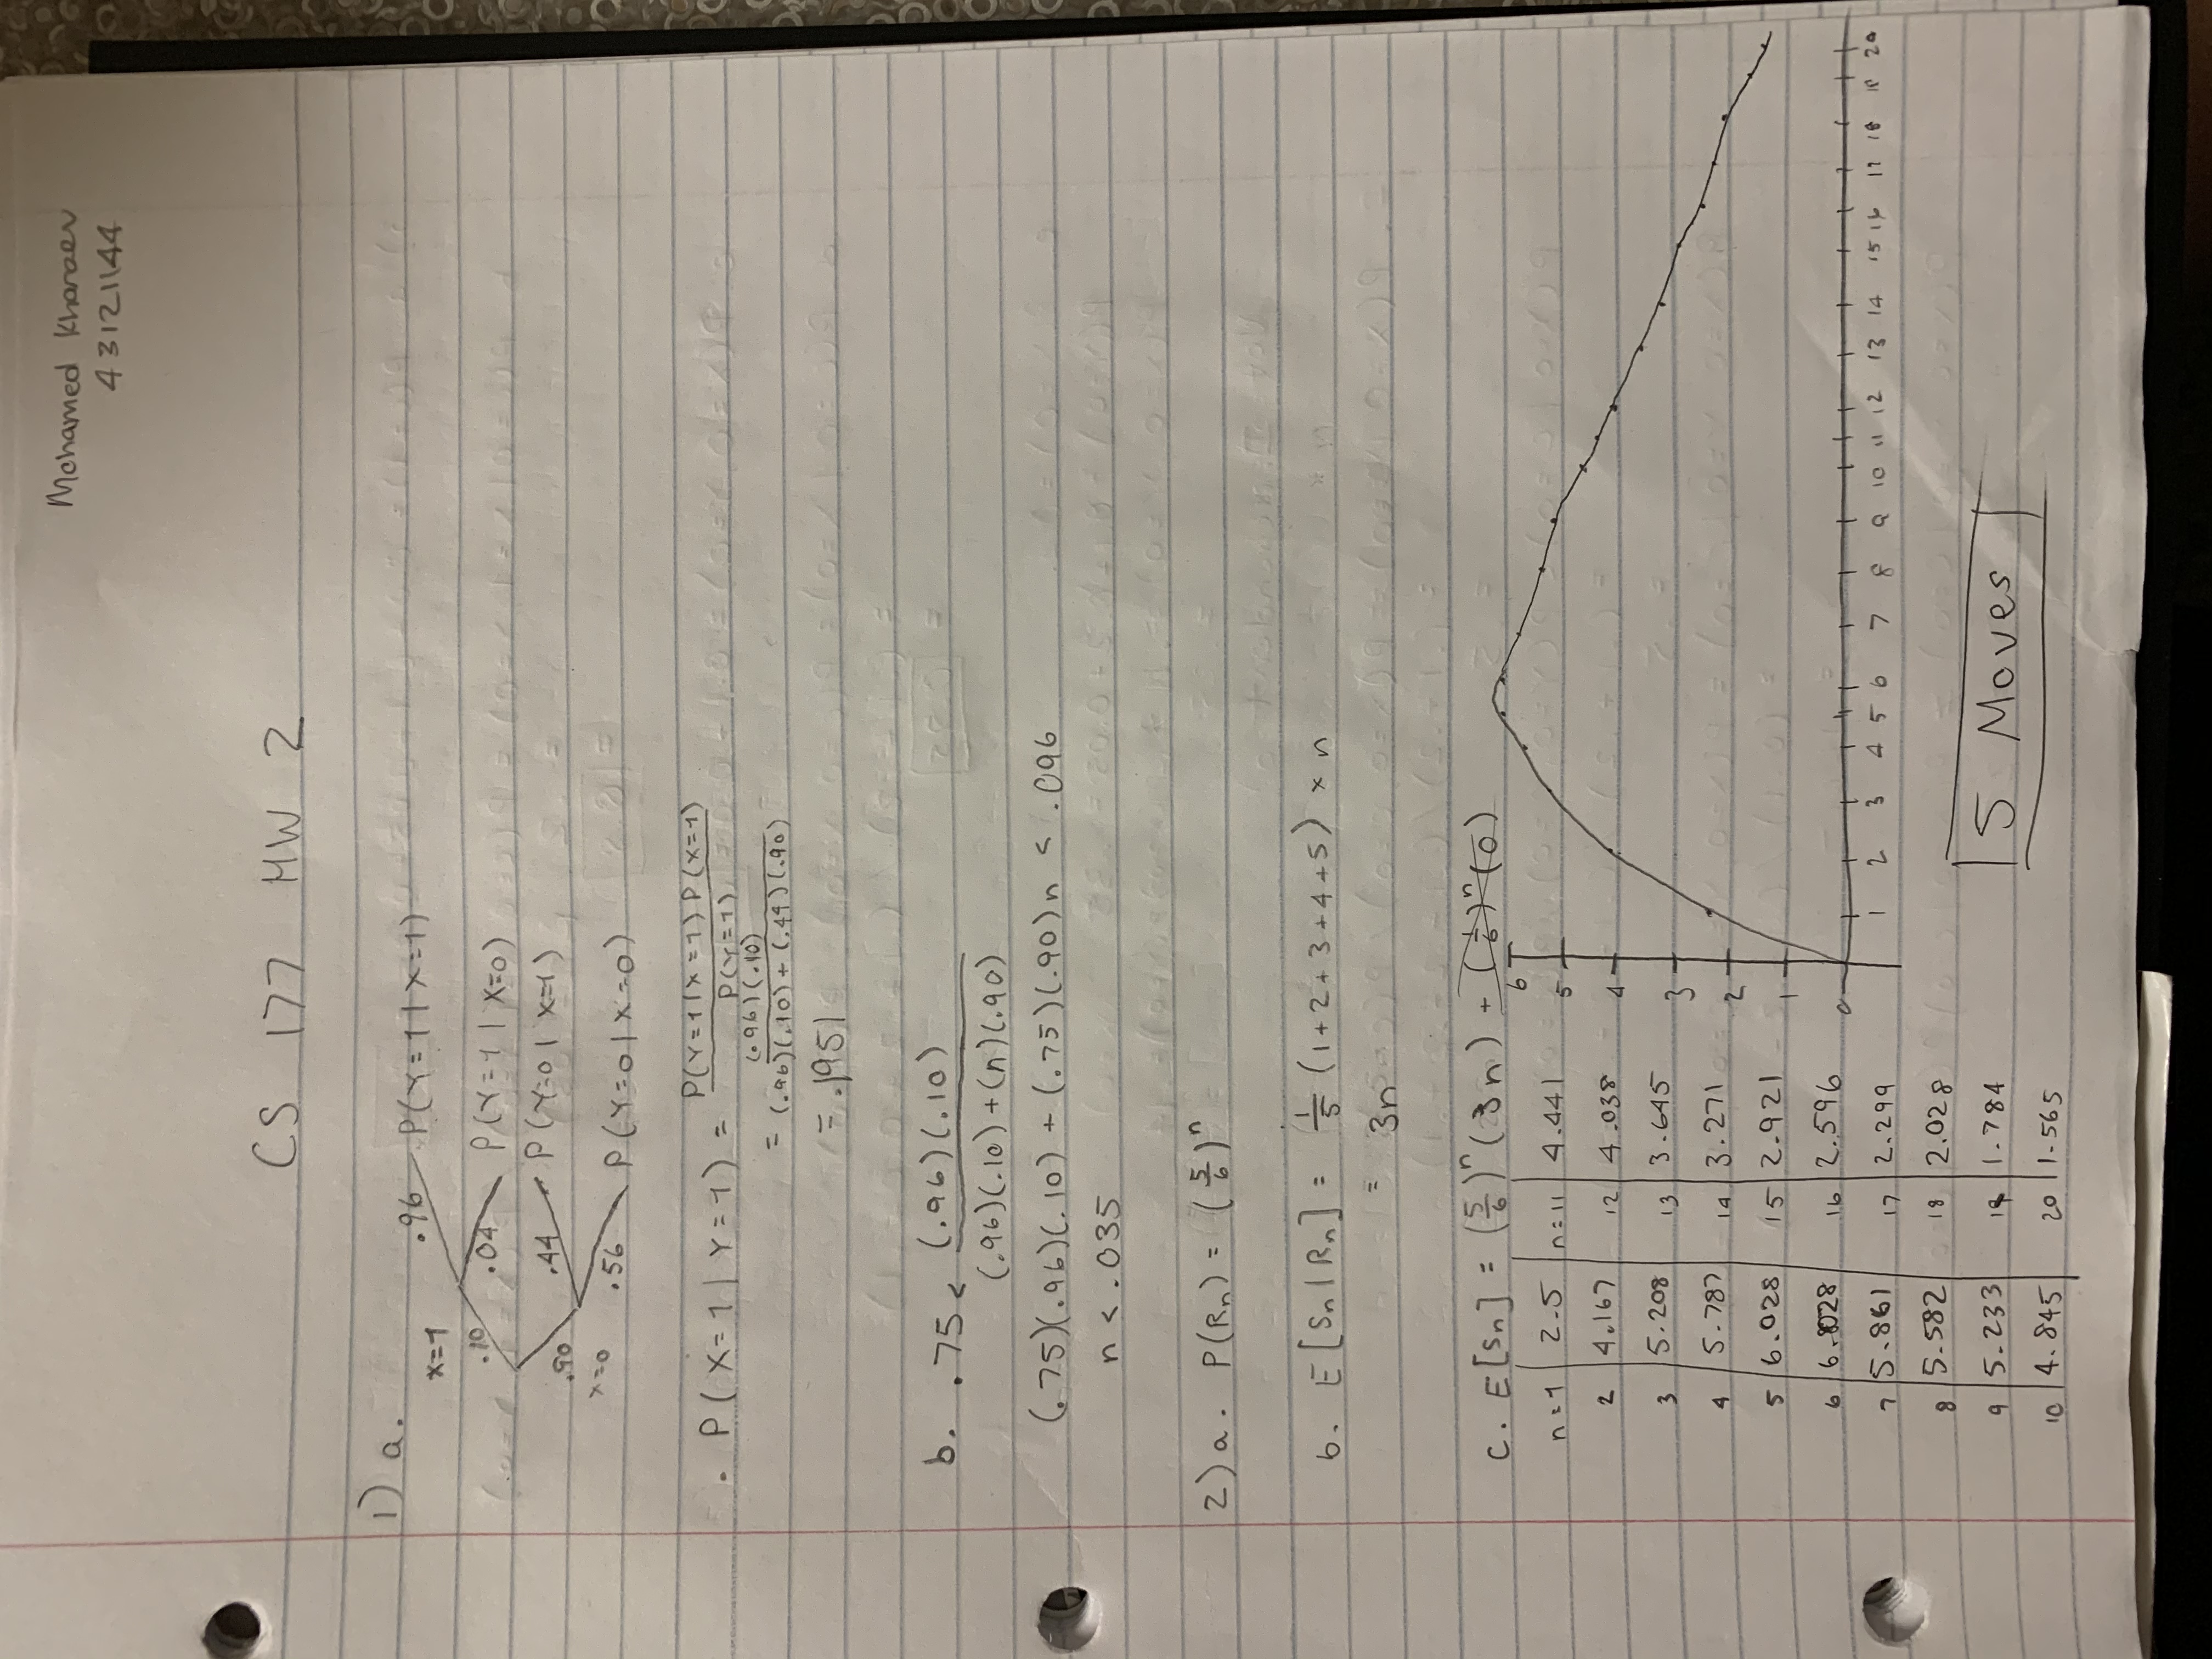 Mohamed
43121144
CS 177 HW 2
1) a.
X=1
.96 P(Y=1|X=1)
.10
.04 P(Y=1|X=0)
.44 P(Y=0|X=1)
.90
X=0
.56 P(Y=0|X=0)
. P(X=1|Y=1) = P(Y=1|X=1)P(X=1) / P(Y=1)
= (.96)(.10) / (.96)(.10)+(.44)(.90)
= .1951
b. .75 < (.96)(.10) / (.96)(.10)+(n)(.90)
(.75)(.96)(.10) + (.75)(.90)n < .096
n < .035
2) a. P(Rn) = (5/6)^n
b. E[Sn|Rn] = 1/5 (1+2+3+4+5) × n
= 3n
c. E[Sn] = (5/6)^n (3n) + (1/6)^n (0)
n=1 2.5 n=11 4.441
2 4.167 12 4.038
3 5.208 13 3.645
4 5.787 14 3.271
5 6.028 15 2.921
6 6.028 16 2.596
7 5.861 17 2.299
8 5.582 18 2.028
9 5.233 19 1.784
10 4.845 20 1.565
6
5
4
3
2
1
0
1 2 3 4 5 6 7 8 9 10 11 12 13 14 15 16 17 18 19 20
5 Moves